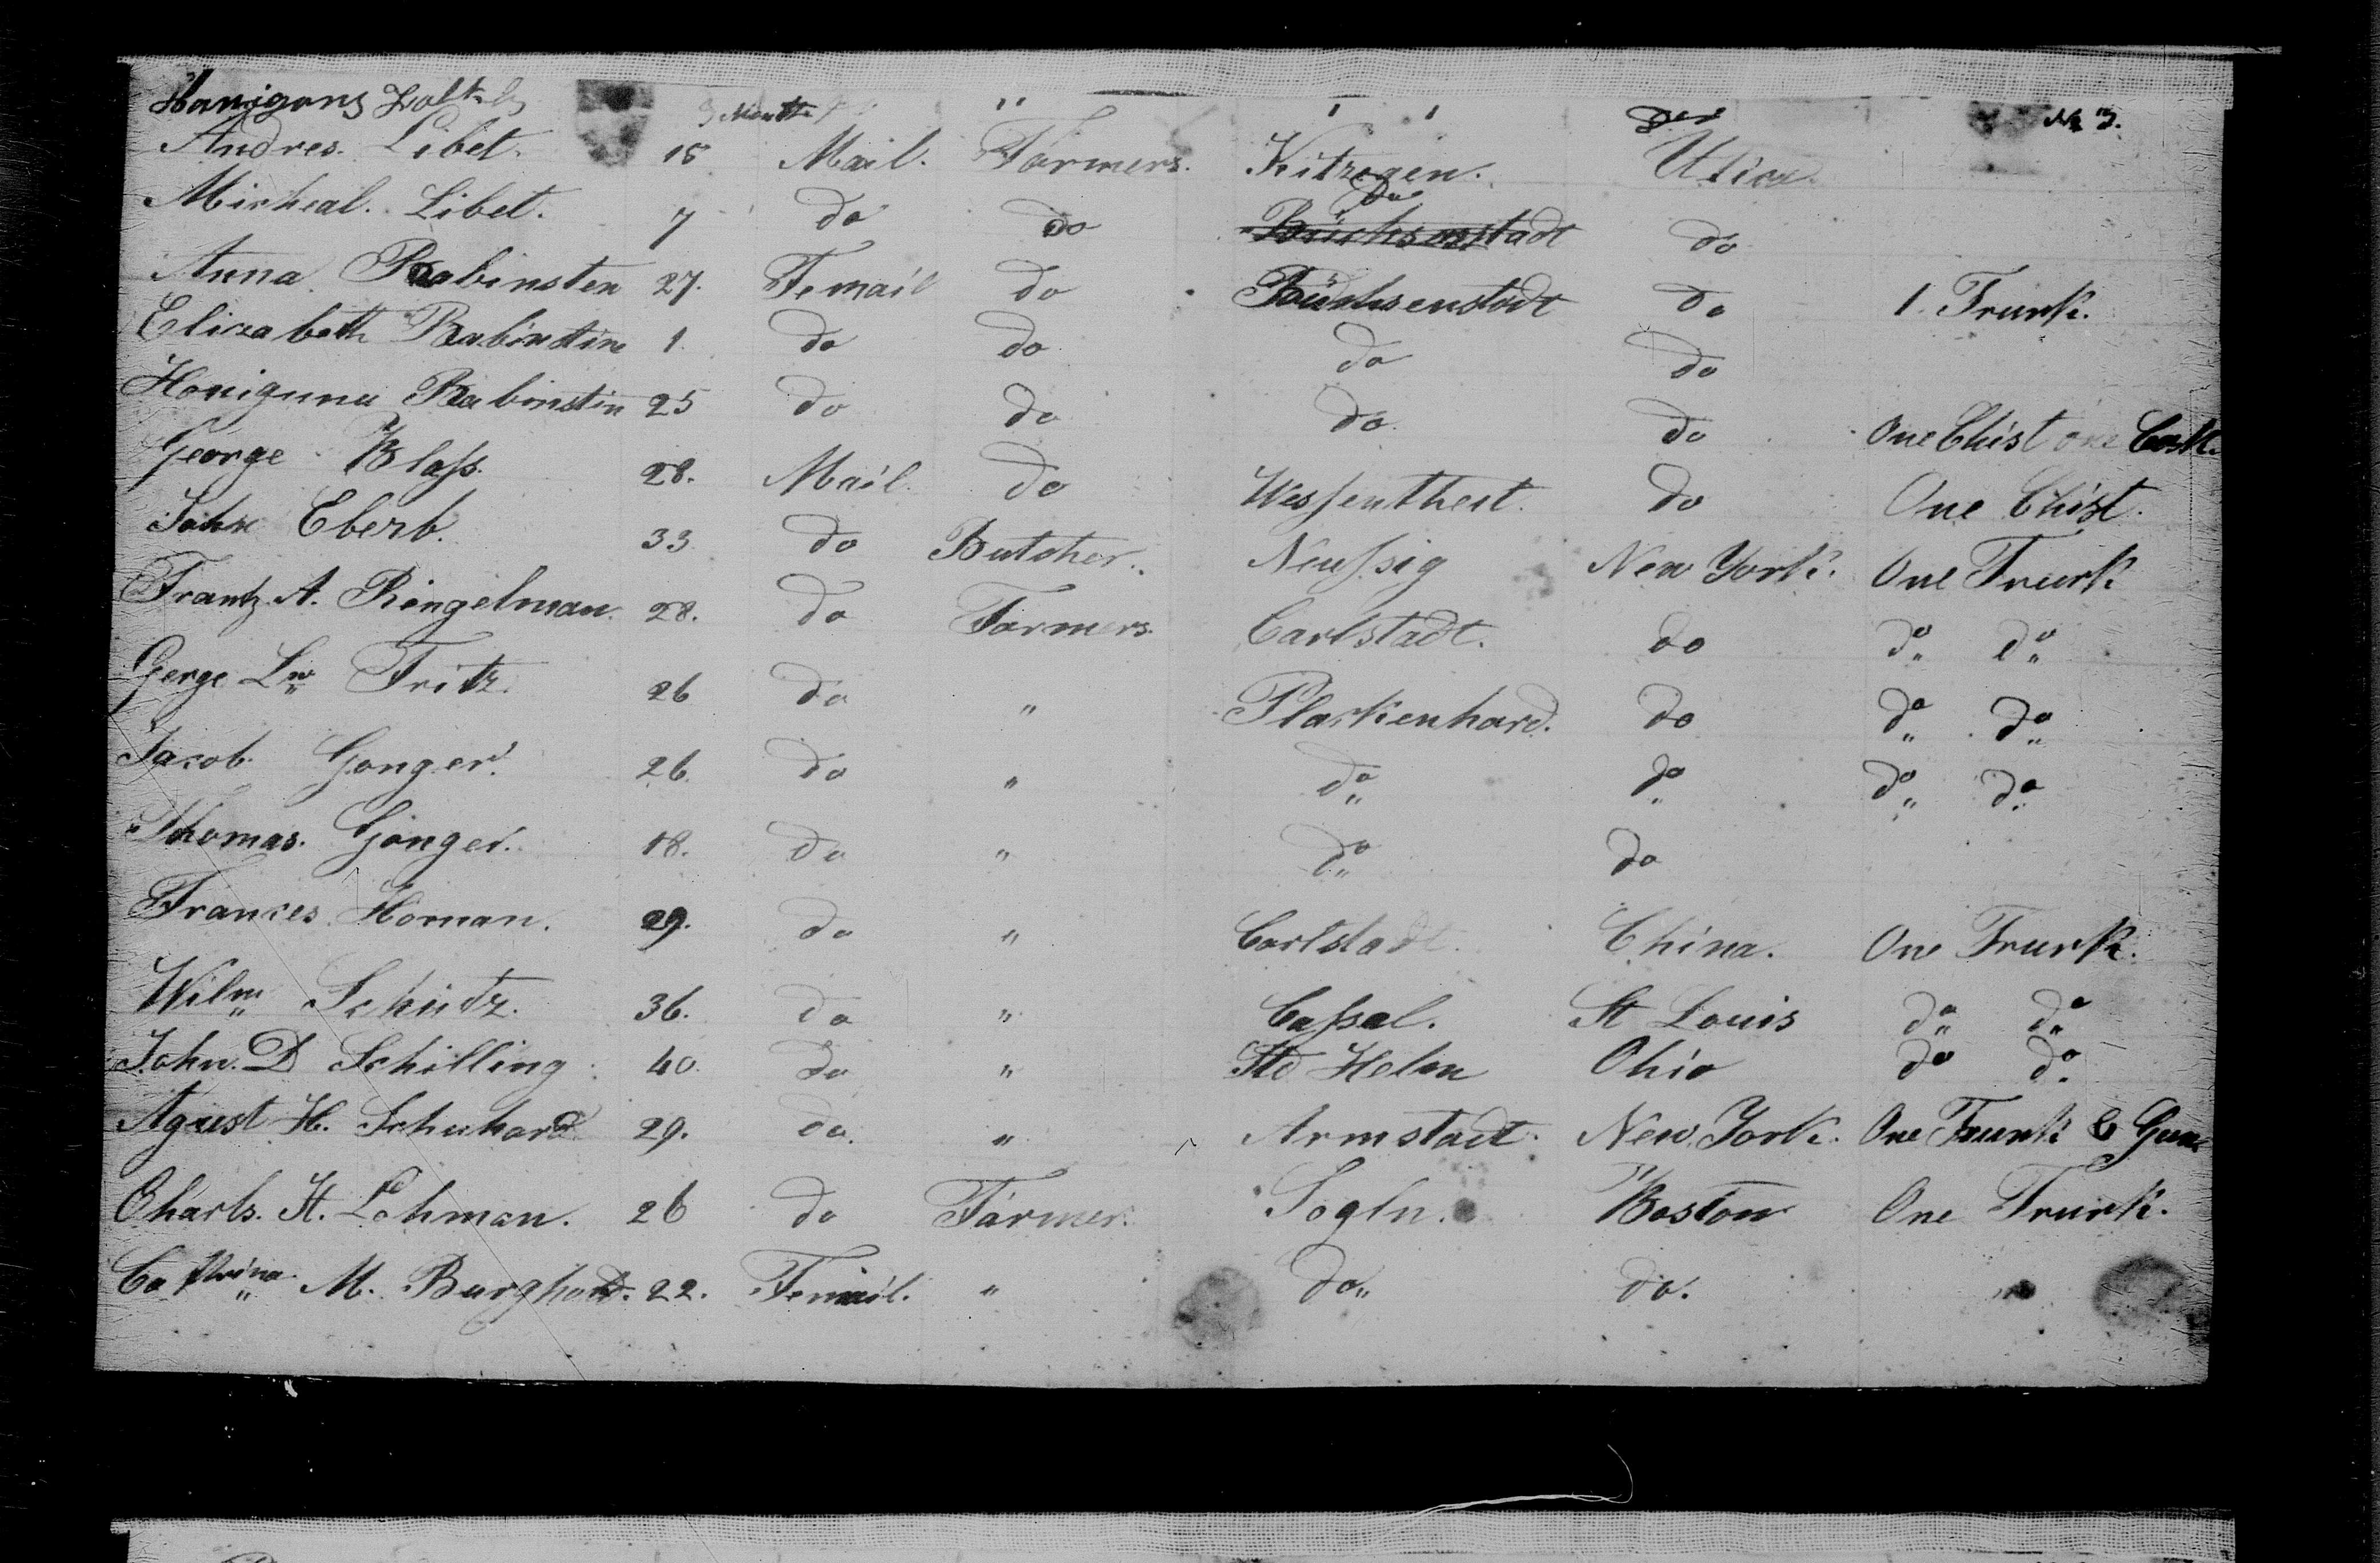 3 Month " " " Do No 3.
Andres. Libet. 18 Mail. Farmers. Kitzegen. Utica.
Micheal. Libet. 7 do do Do Büchsenstadt do
Anna. Rabinsten 27. Femail do Büchsenstadt do 1. Trunk.
Elizabeth Rabinstin 1 do do do do
Honiguna Rabinstin 25 do do do do One Chist one Cask.
George Blass. 28. Mail. do Wessentheit. do One Chist.
John Eberb. 33 do Butcher. Neussig New York. One Trunk
Frantz. A. Ringelman. 28. do Farmers. Carlstadt. do do do
Gerge Lw Fritz. 26 do " Plarkenhard. do do do
Jacob. Gonger. 26. do " do do do do
Thomas. Gonger. 18. do " do do
Frances Homan. 29. do " Carlstadt. China. One Trunk.
Wilm Schutz. 36. do " Cassal. St Louis do do
John. D Schilling 40. do " Std Helm Ohio do do
Agust H. Schuhard 29. do. " Armstadt. New York. One Trunk & Gun
Charls. H. Lohman. 26 do Farmer. Sogln. Boston One Trunk.
Cathrina M. Burghard. 22. Femail. " do do.